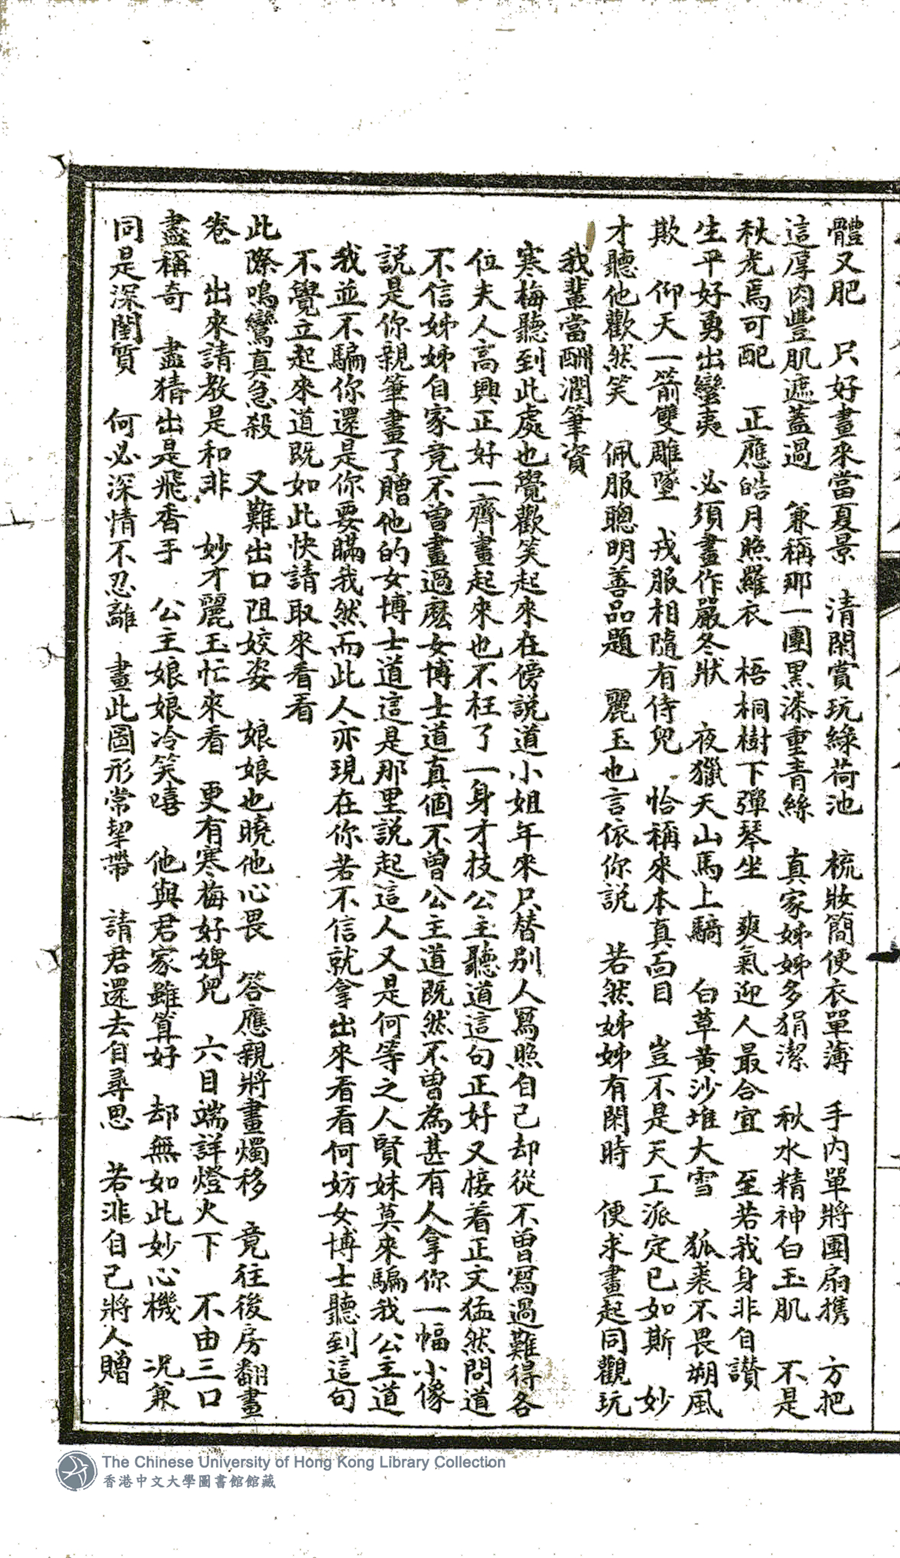 體又肥　只好畫來當夏景　清閑賞玩綠荷池　梳妝簡便衣單薄　手內單將團扇携　方把
這厚肉豐肌遮蓋過　兼稱那一團黑漆重青絲　真家姊姊多狷潔　秋水精神白玉肌　不是
秋光焉可配　正應皓月照羅衣　梧桐樹下彈琴坐　爽氣迎人最合宜　至若我身非自讃
生平好勇出蠻夷　必須畫作嚴冬狀　夜獵天山馬上騎　白草黃沙堆大雪　狐裘不畏朔風
欺　仰天一箭雙雕墜　戎服相隨有侍兒　恰稱來本真面目　豈不是天工派定已如斯　妙
才聽他歡然笑　佩服聰明善品題　麗玉也言依你説　若然姊姊有閑時　便求畫起同觀玩
我輩當酬潤筆資
寒梅聽到此處也覺歡笑起來在傍説道小姐年來只替別人寫照自己却從不曾寫過難得各
位夫人高興正好一齊畫起來也不枉了一身才技公主聽道這句正好又接着正文猛然問道
不信姊姊自家竟不曾畫過麽女博士道真個不曾公主道既然不曾為甚有人拿你一幅小像
説是你親筆畫了贈他的女博士道這是那里説起這人又是何等之人賢妹莫來騙我公主道
我並不騙你還是你要瞞我然而此人亦現在你若不信就拿出來看看何妨女博士聽到這句
不覺立起來道既如此快請取來看看
此際鳴鸞真急殺　又難出口阻姣姿　娘娘也曉他心畏　答應親將畫燭移　竟往後房翻畫
卷　出來請教是和非　妙才麗玉忙來看　更有寒梅好婢兒　六目端詳燈火下　不由三口
盡稱奇　盡猜出是飛香手　公主娘娘冷笑嘻　他與君家雖算好　却無如此妙心機　况兼
同是深閨質　何必深情不忍離　畫此圖形常挈帶　請君還去自尋思　若非自己將人贈
The Chinese University of Hong Kong Library Collection
香港中文大學圖書館館藏